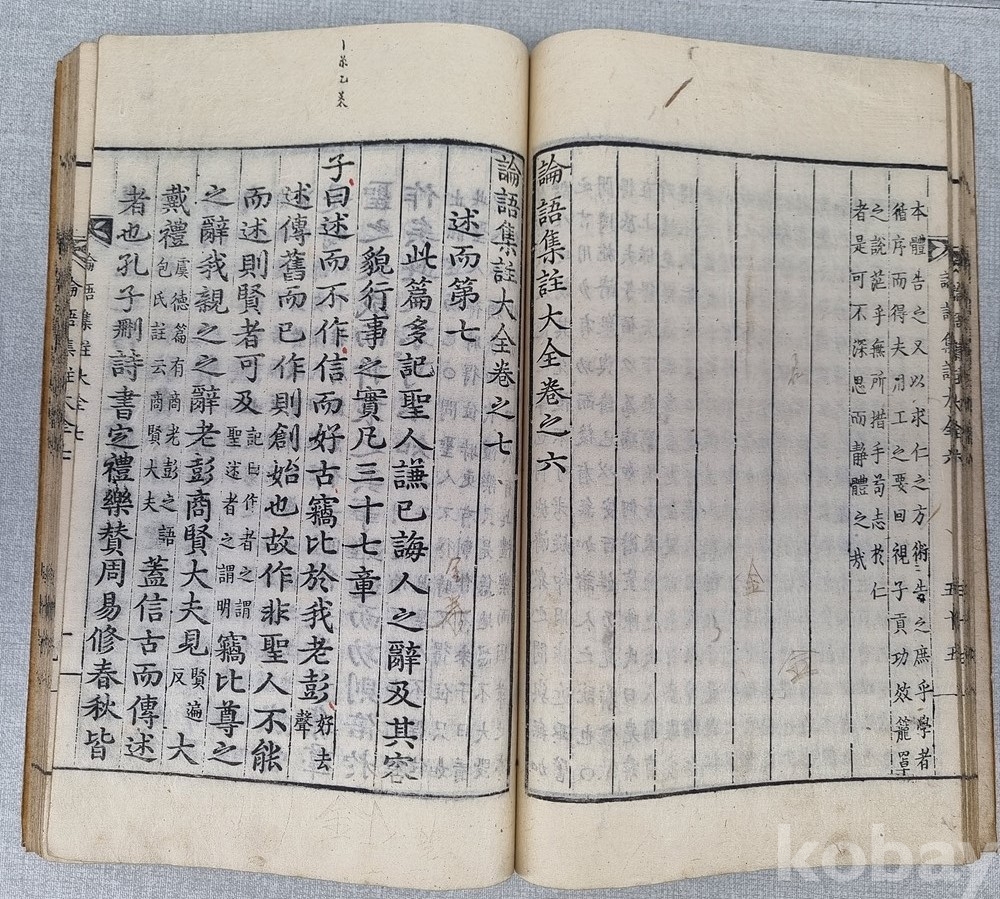 本體告之又以求仁之方術告之庶乎學者
循序而得夫用工之要回視子貢功效籠罩
之說茫乎無所措手苟志於仁
者是可不深思而靜體之哉
論語集註大全卷之六
論語集註大全卷之七
述而第七
此篇多記聖人謙己誨人之辭及其容
貌行事之實凡三十七章
子曰述而不作信而好古竊比於我老彭好去聲
述傳舊而已作則創始也故作非聖人不能
而述則賢者可及記曰作者之謂聖述者之謂明竊比尊之
之辭我親之之辭老彭商賢大夫見賢遍反大
戴禮虞德篇有商老彭之語包氏註云商賢大夫蓋信古而傳述
者也孔子刪詩書定禮樂贊周易修春秋皆
論語集註大全七
kobay